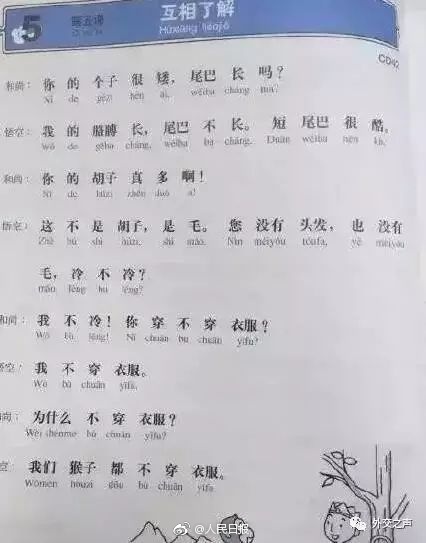 5 第五课 互相了解
Hùxiāng liǎojiě
CD02
和尚：你 的 个子 很 矮，尾巴 长 吗？
Nǐ de gèzi hěn ǎi, wěiba cháng ma?
悟空：我 的 胳膊 长，尾巴 不 长。短 尾巴 很 酷。
Wǒ de gēbo cháng, wěiba bù cháng. Duǎn wěiba hěn kù.
和尚：你 的 胡子 真 多 啊！
Nǐ de húzi zhēn duō a!
悟空：这 不 是 胡子，是 毛。您 没有 头发，也 没有
Zhè bú shì húzi, shì máo. Nín méiyǒu tóufa, yě méiyǒu
毛，冷 不 冷？
máo, lěng bu lěng?
和尚：我 不 冷！你 穿 不 穿 衣服？
Wǒ bù lěng! Nǐ chuān bu chuān yīfu?
悟空：我 不 穿 衣服。
Wǒ bù chuān yīfu.
和尚：为什么 不 穿 衣服？
Wèi shénme bù chuān yīfu?
空：我们 猴子 都 不 穿 衣服。
Wǒmen hóuzi dōu bù chuān yīfu.
@人民日报
外交之声